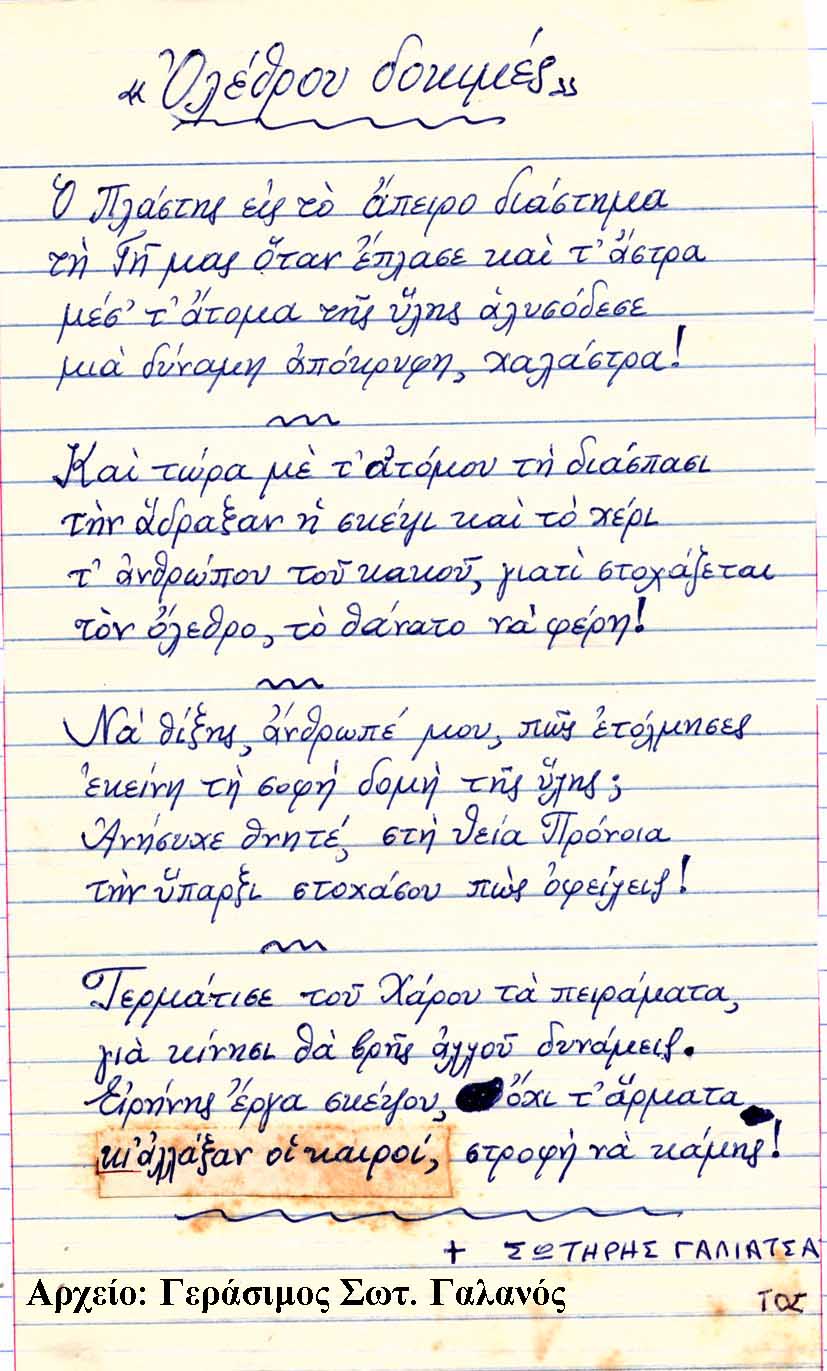 «Ὀλέθρου δοκιμές»
Ὁ Πλάστης εἰς τὸ ἄπειρο διάστημα
τὴ Γῆ μας ὅταν ἔπλασε καὶ τ' ἄστρα
μέσ' τ' ἄτομα τῆς ὕλης ἁλυσόδεσε
μιὰ δύναμη ἀπόκρυφη, χαλάστρα!
Καὶ τώρα μὲ τ' ἀτόμου τὴ διάσπασι
τὴν ἅδραξαν ἡ σκέψι καὶ τὸ χέρι
τ' ἀνθρώπου τοῦ κακοῦ, γιατὶ στοχάζεται
τὸν ὄλεθρο, τὸ θάνατο νὰ φέρη!
Νὰ θίξης, ἄνθρωπέ μου, πῶς ἐτόλμησες
ἐκείνη τὴ σοφὴ δομὴ τῆς ὕλης;
Ἀνήσυχε θνητέ, στὴ θεία Πρόνοια
τὴν ὕπαρξι στοχάσου πὼς ὀφείλεις!
Τερμάτισε τοῦ Χάρου τὰ πειράματα,
γιὰ κίνησι θὰ βρῆς ἀλλοῦ δυνάμεις.
Εἰρήνης ἔργα σκέψου, ὄχι τ' ἄρματα
κι' ἀλλάξαν οἱ καιροί, στροφὴ νὰ κάμης!
+ ΣΩΤΗΡΗΣ ΓΑΛΙΑΤΣΑ
ΤΟΣ
Αρχείο: Γεράσιμος Σωτ. Γαλανός